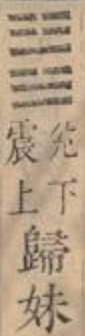 兊下
震上
歸妹